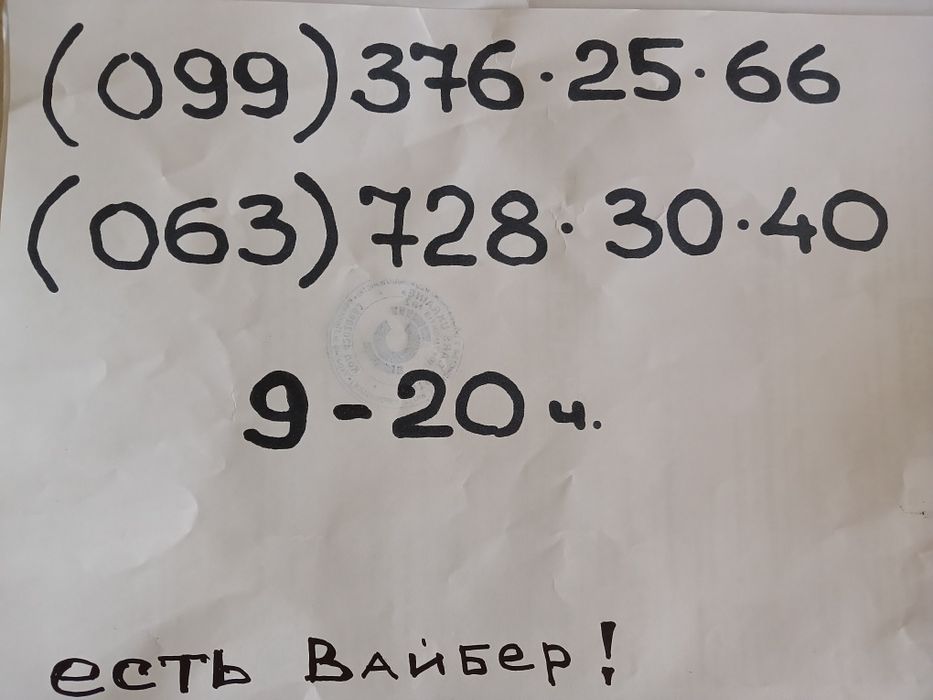 (099) 376·25·66
(063) 728·30·40
9-20 ч.
есть Вайбер!